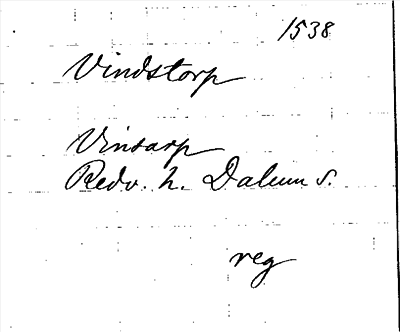 1538
Vindstorp
Vintarp
Redv. h. Dalum s.
reg